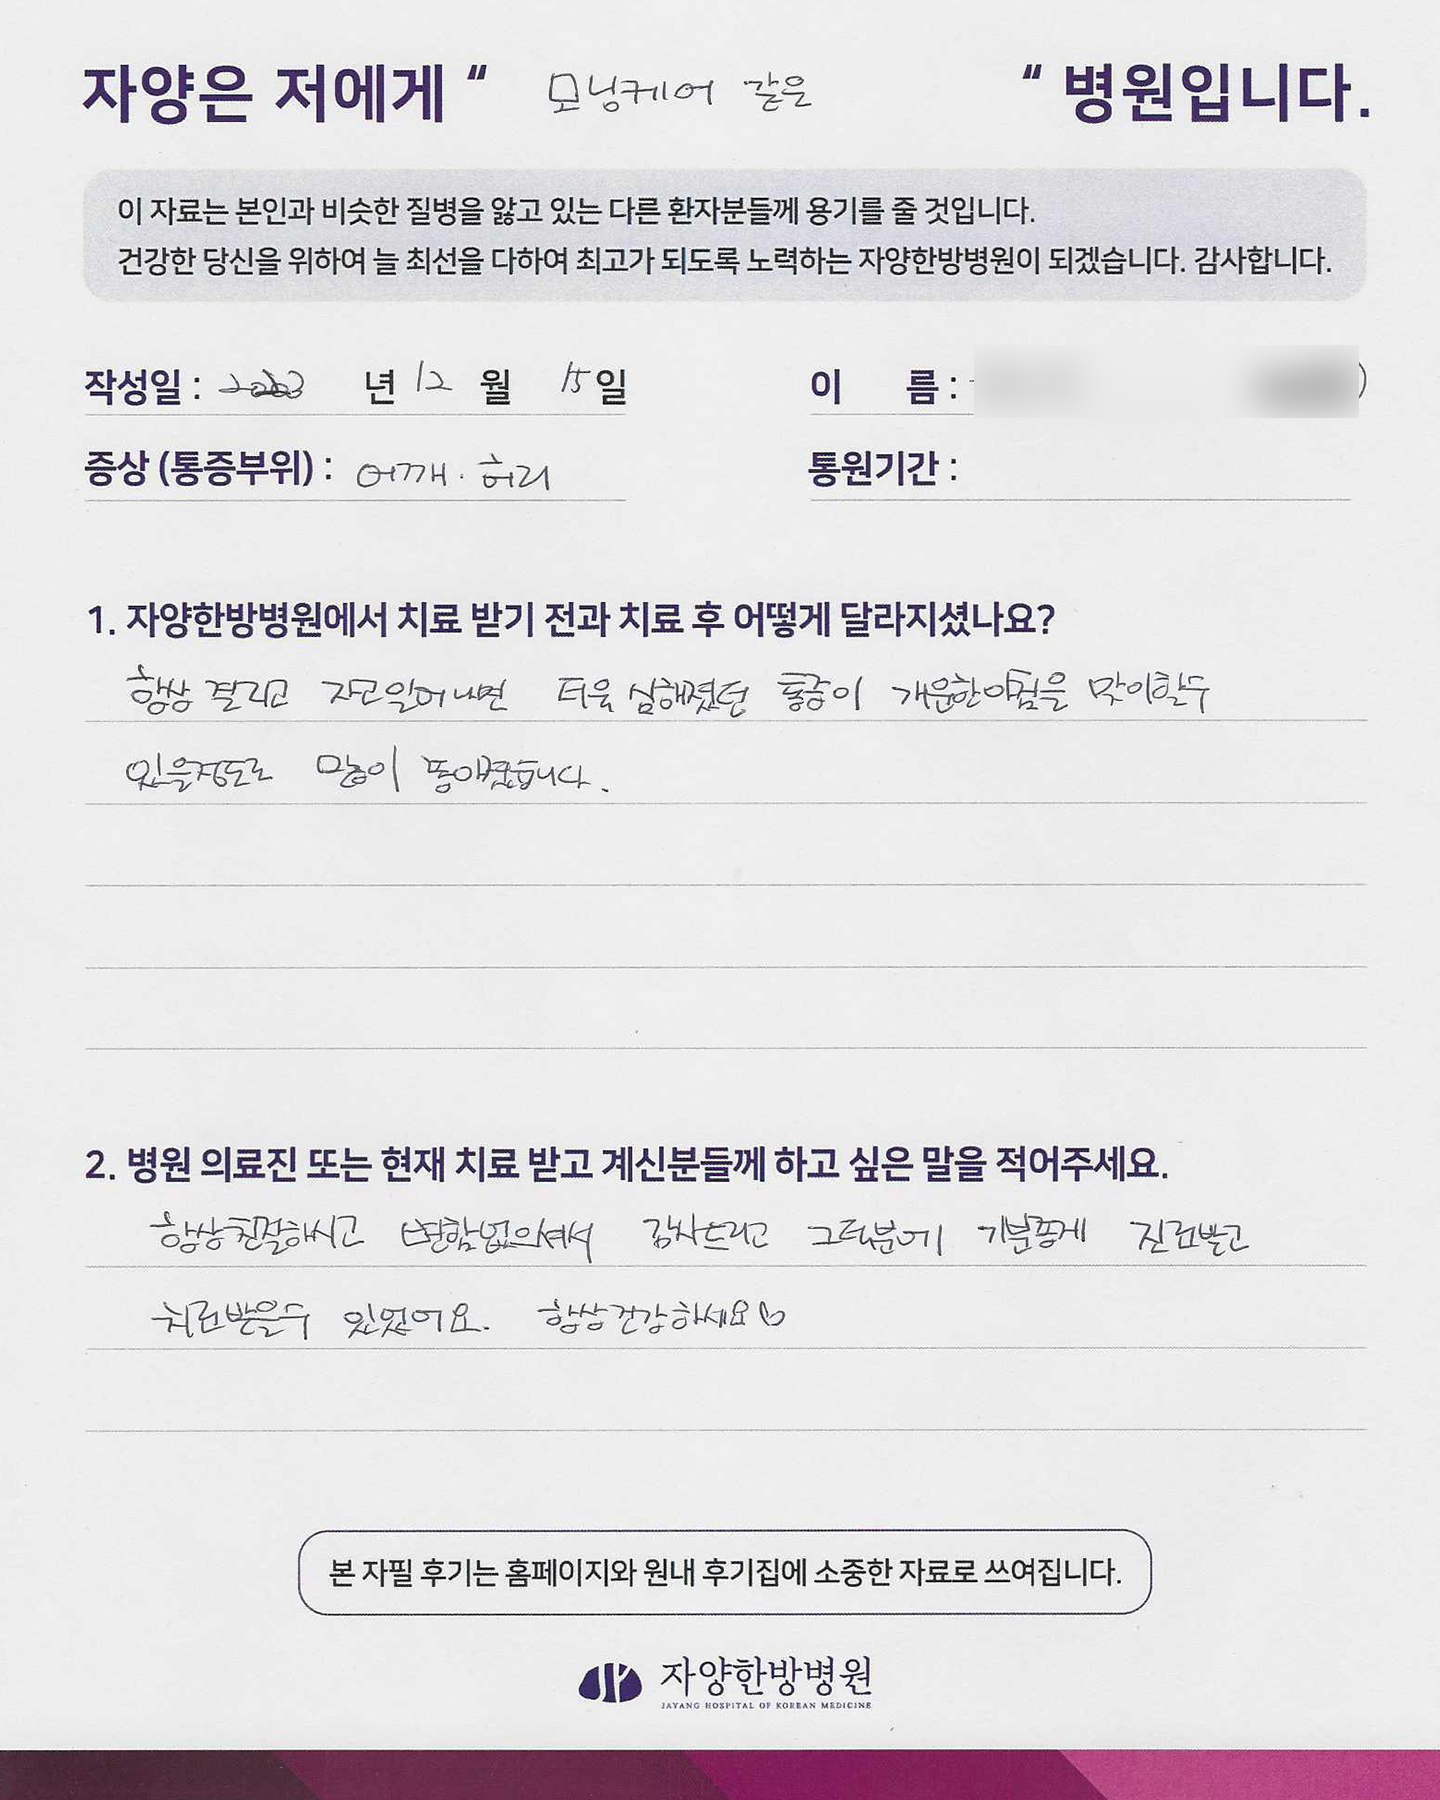 자양은 저에게 “ 모닝케어 같은 “ 병원입니다.
이 자료는 본인과 비슷한 질병을 앓고 있는 다른 환자분들께 용기를 줄 것입니다.
건강한 당신을 위하여 늘 최선을 다하여 최고가 되도록 노력하는 자양한방병원이 되겠습니다. 감사합니다.
작성일 : 2023 년 12 월 15 일 이 름 :
증상 (통증부위) : 어깨. 허리 통원기간 :
1. 자양한방병원에서 치료 받기 전과 치료 후 어떻게 달라지셨나요?
항상 결리고 자고 일어나면 더욱 심해졌던 통증이 개운한아침을 맞이할수
있을정도로 많이 좋아졌습니다.
2. 병원 의료진 또는 현재 치료 받고 계신분들께 하고 싶은 말을 적어주세요.
항상친절하시고 변함없으셔서 감사드리고 그덕분에 기분좋게 진료받고
치료받을수 있었어요. 항상건강하세요♡
본 자필 후기는 홈페이지와 원내 후기집에 소중한 자료로 쓰여집니다.
자양한방병원
JAYANG HOSPITAL OF KOREAN MEDICINE